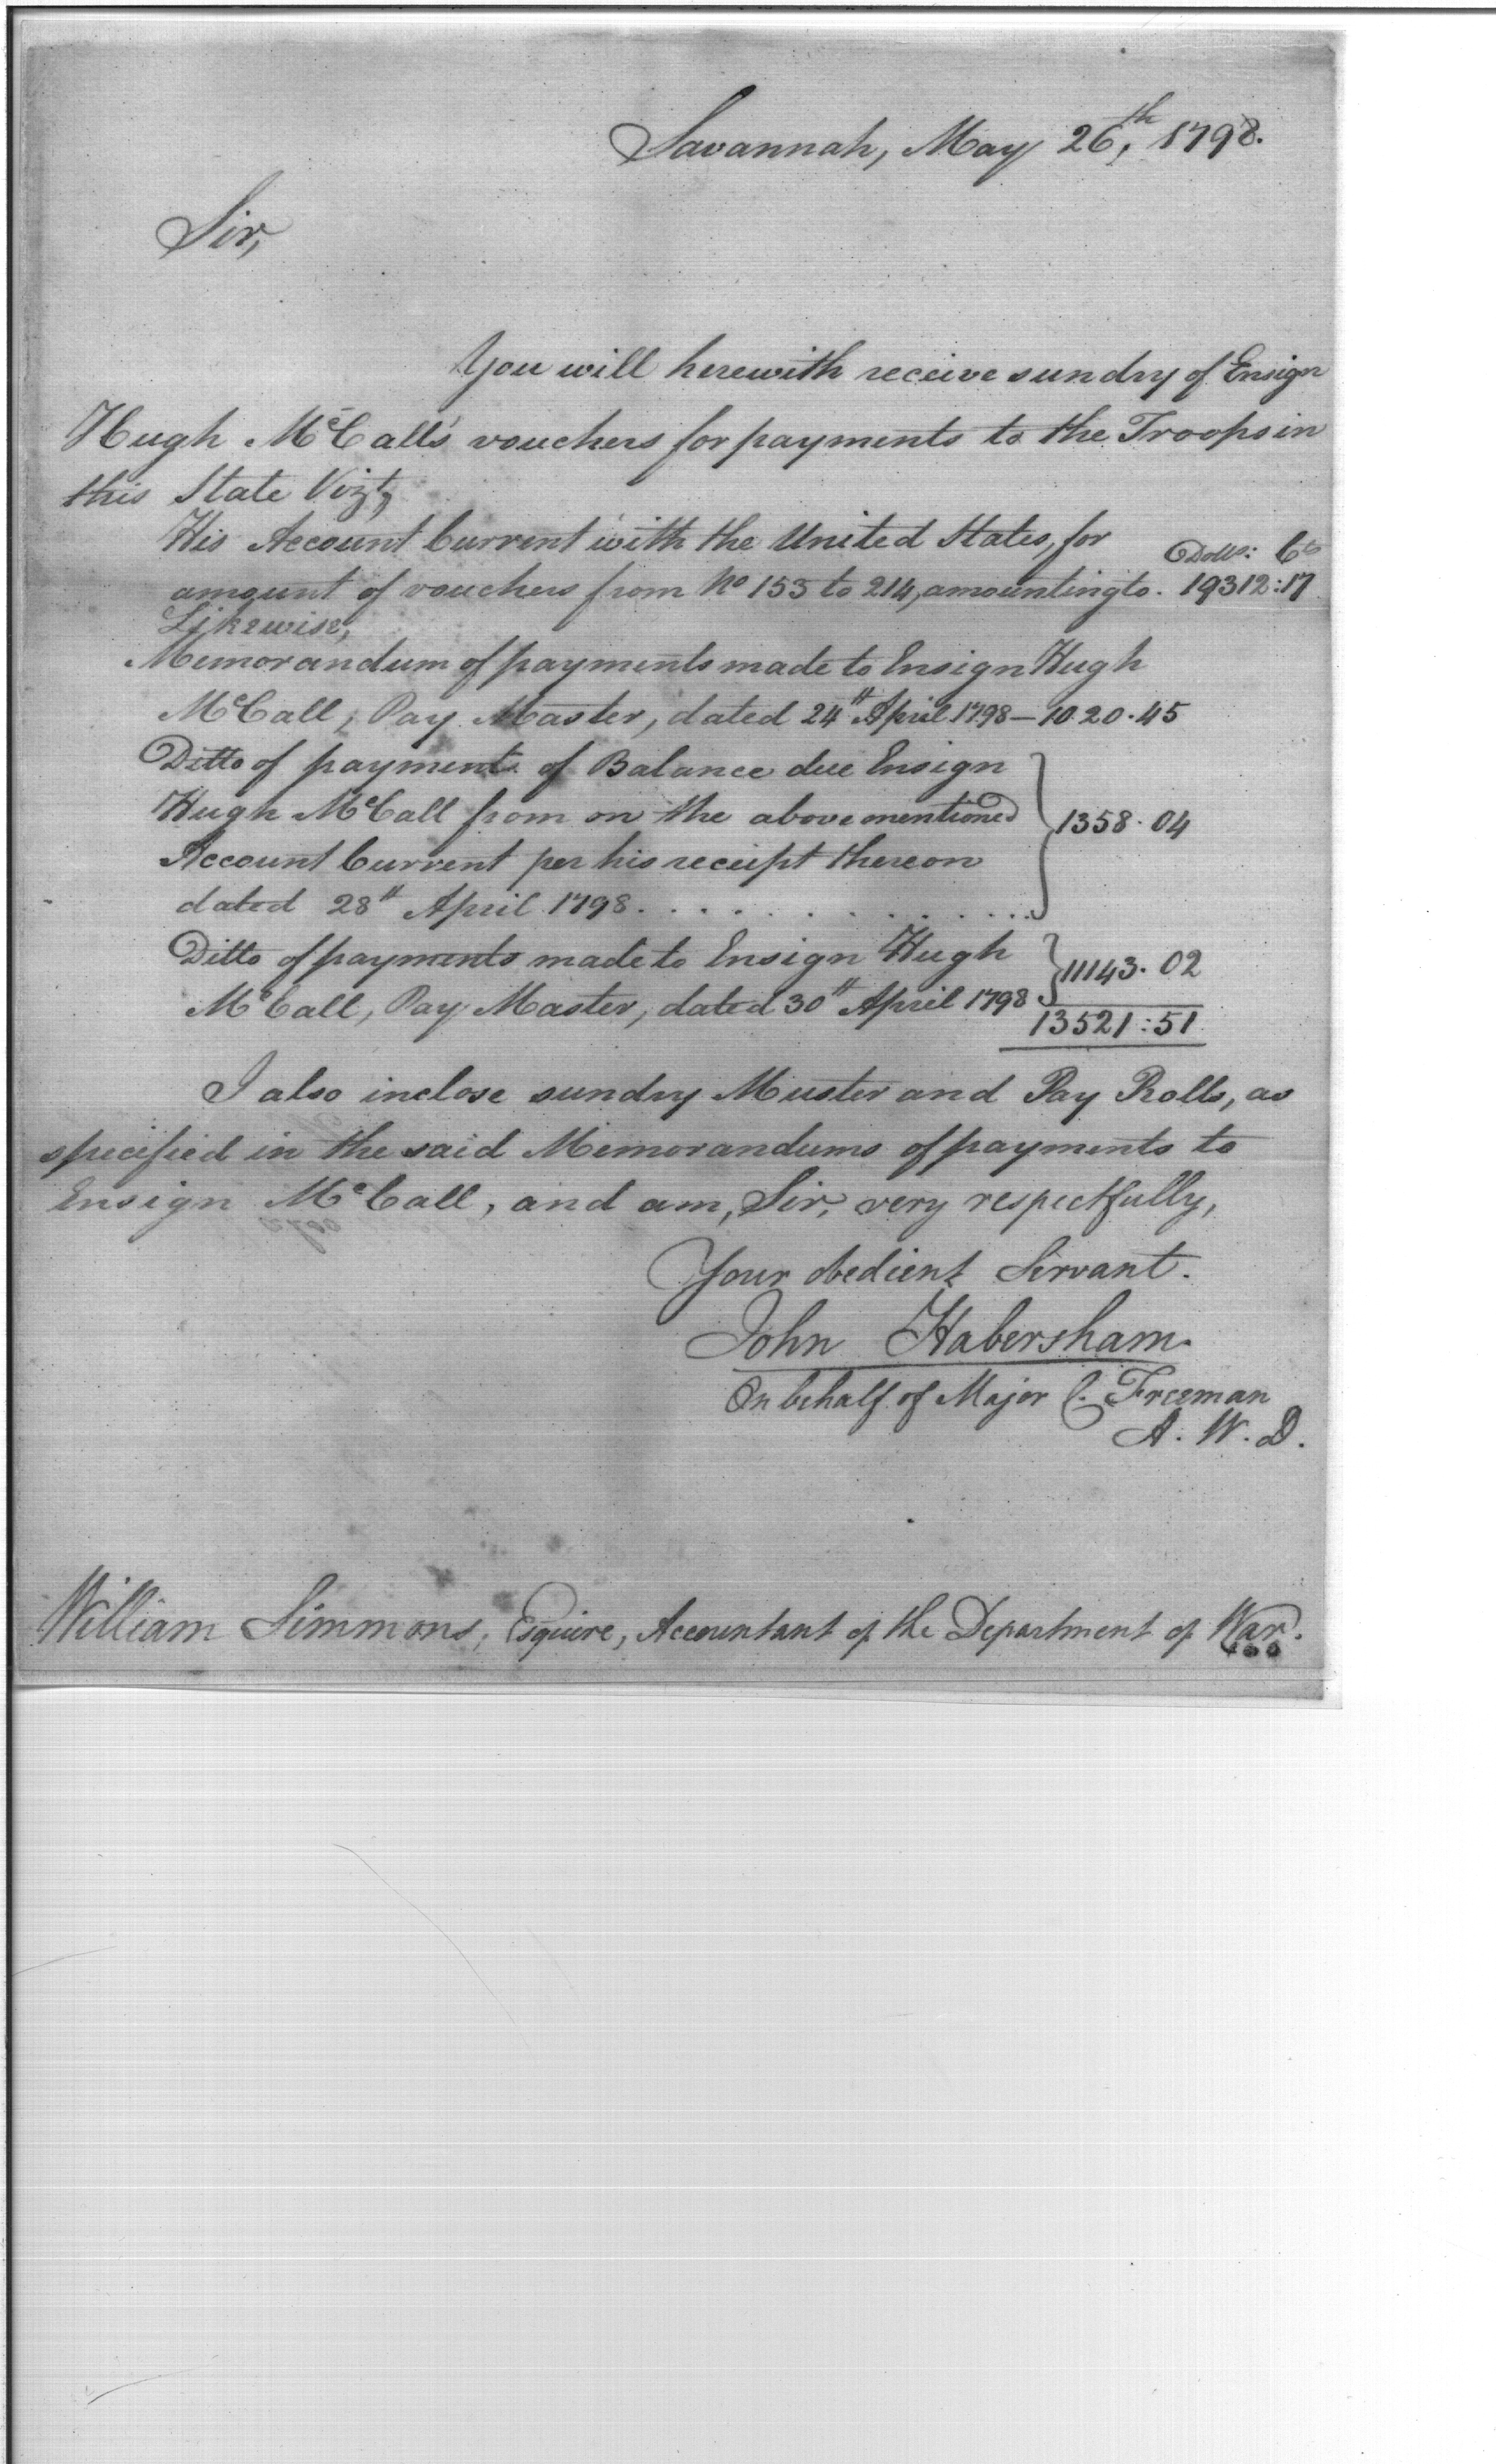 Savannah, May 26th, 1798.
Sir,
You will herewith receive sundry of Ensign
Hugh McCall's vouchers for payments to the Troops in
this State Vizt,
His Account Current with the United States, for Dolls: Cts
amount of vouchers from No 153 to 214, amounting to. 19312:17
Likewise,
Memorandum of payments made to Ensign Hugh
McCall, Pay Master, dated 24th April 1798 — 10.20.45
Ditto of payments of Balance due Ensign
Hugh McCall from on the above mentioned 1358.04
Account Current per his receipt thereon
dated 28th April 1798. . . . . . . . . . . .
Ditto of payments made to Ensign Hugh
McCall, Pay Master, dated 30th April 1798 11143.02
13521:51
I also inclose sundry Muster and Pay Rolls, as
specified in the said Memorandums of payments to
Ensign McCall, and am, Sir, very respectfully,
Your obedient Servant.
John Habersham.
On behalf of Major C. Freeman
A. W. D.
William Simmons, Esquire, Accountant of the Department of War.